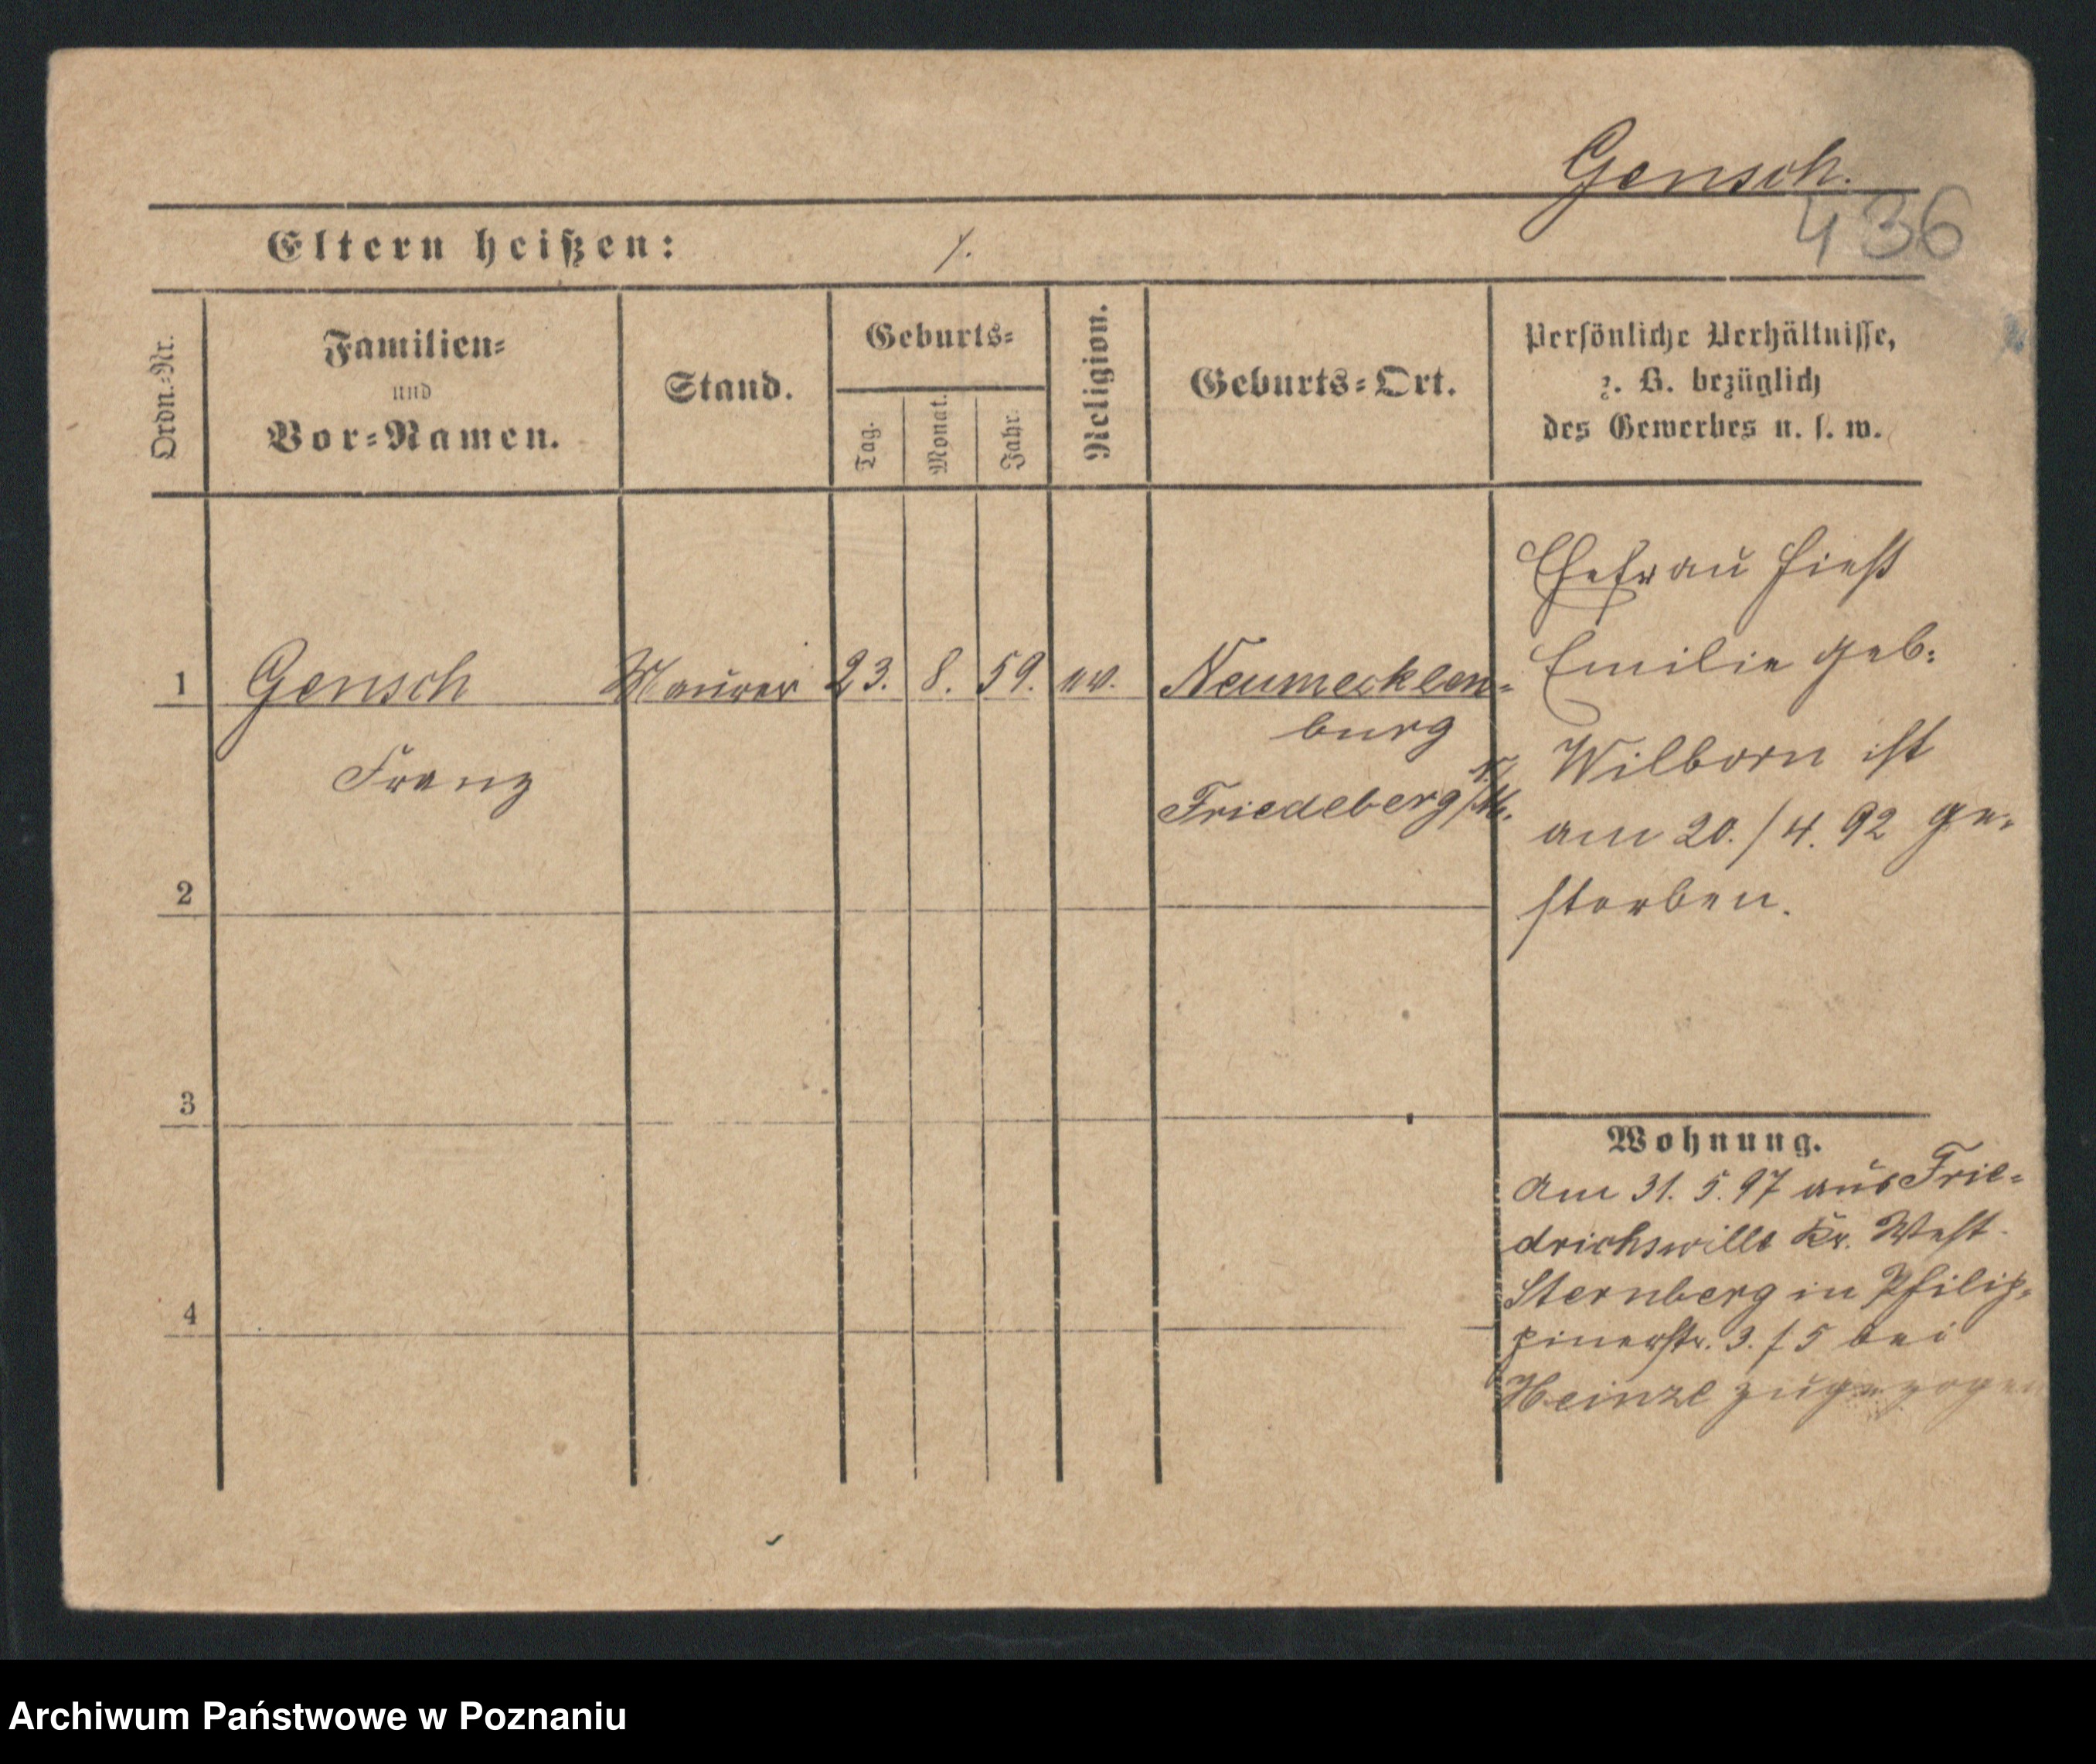 Gensch.
436
Eltern heißen: ⁒.
Ordn.-Nr.
Familien-
und
Vor-Namen.
Stand.
Geburts-
Tag.
Monat.
Jahr.
Religion.
Geburts-Ort.
Persönliche Verhältnisse,
z. B. bezüglich
des Gewerbes u. s. w.
1 Gensch Maurer 23. 8. 59. ev. Neumecklen-
burg
Franz
Friedeberg N/M.
Ehefrau hieß
Emilie geb:
Wilborn ist
am 20./4. 92 ge-
storben.
2
3
4
Wohnung.
Am 31. 5. 97 aus Frie-
drichswille Kr. West-
Sternberg in Philip-
pinerstr. 3. / 5 bei
Heinze zugezogen
Archiwum Państwowe w Poznaniu